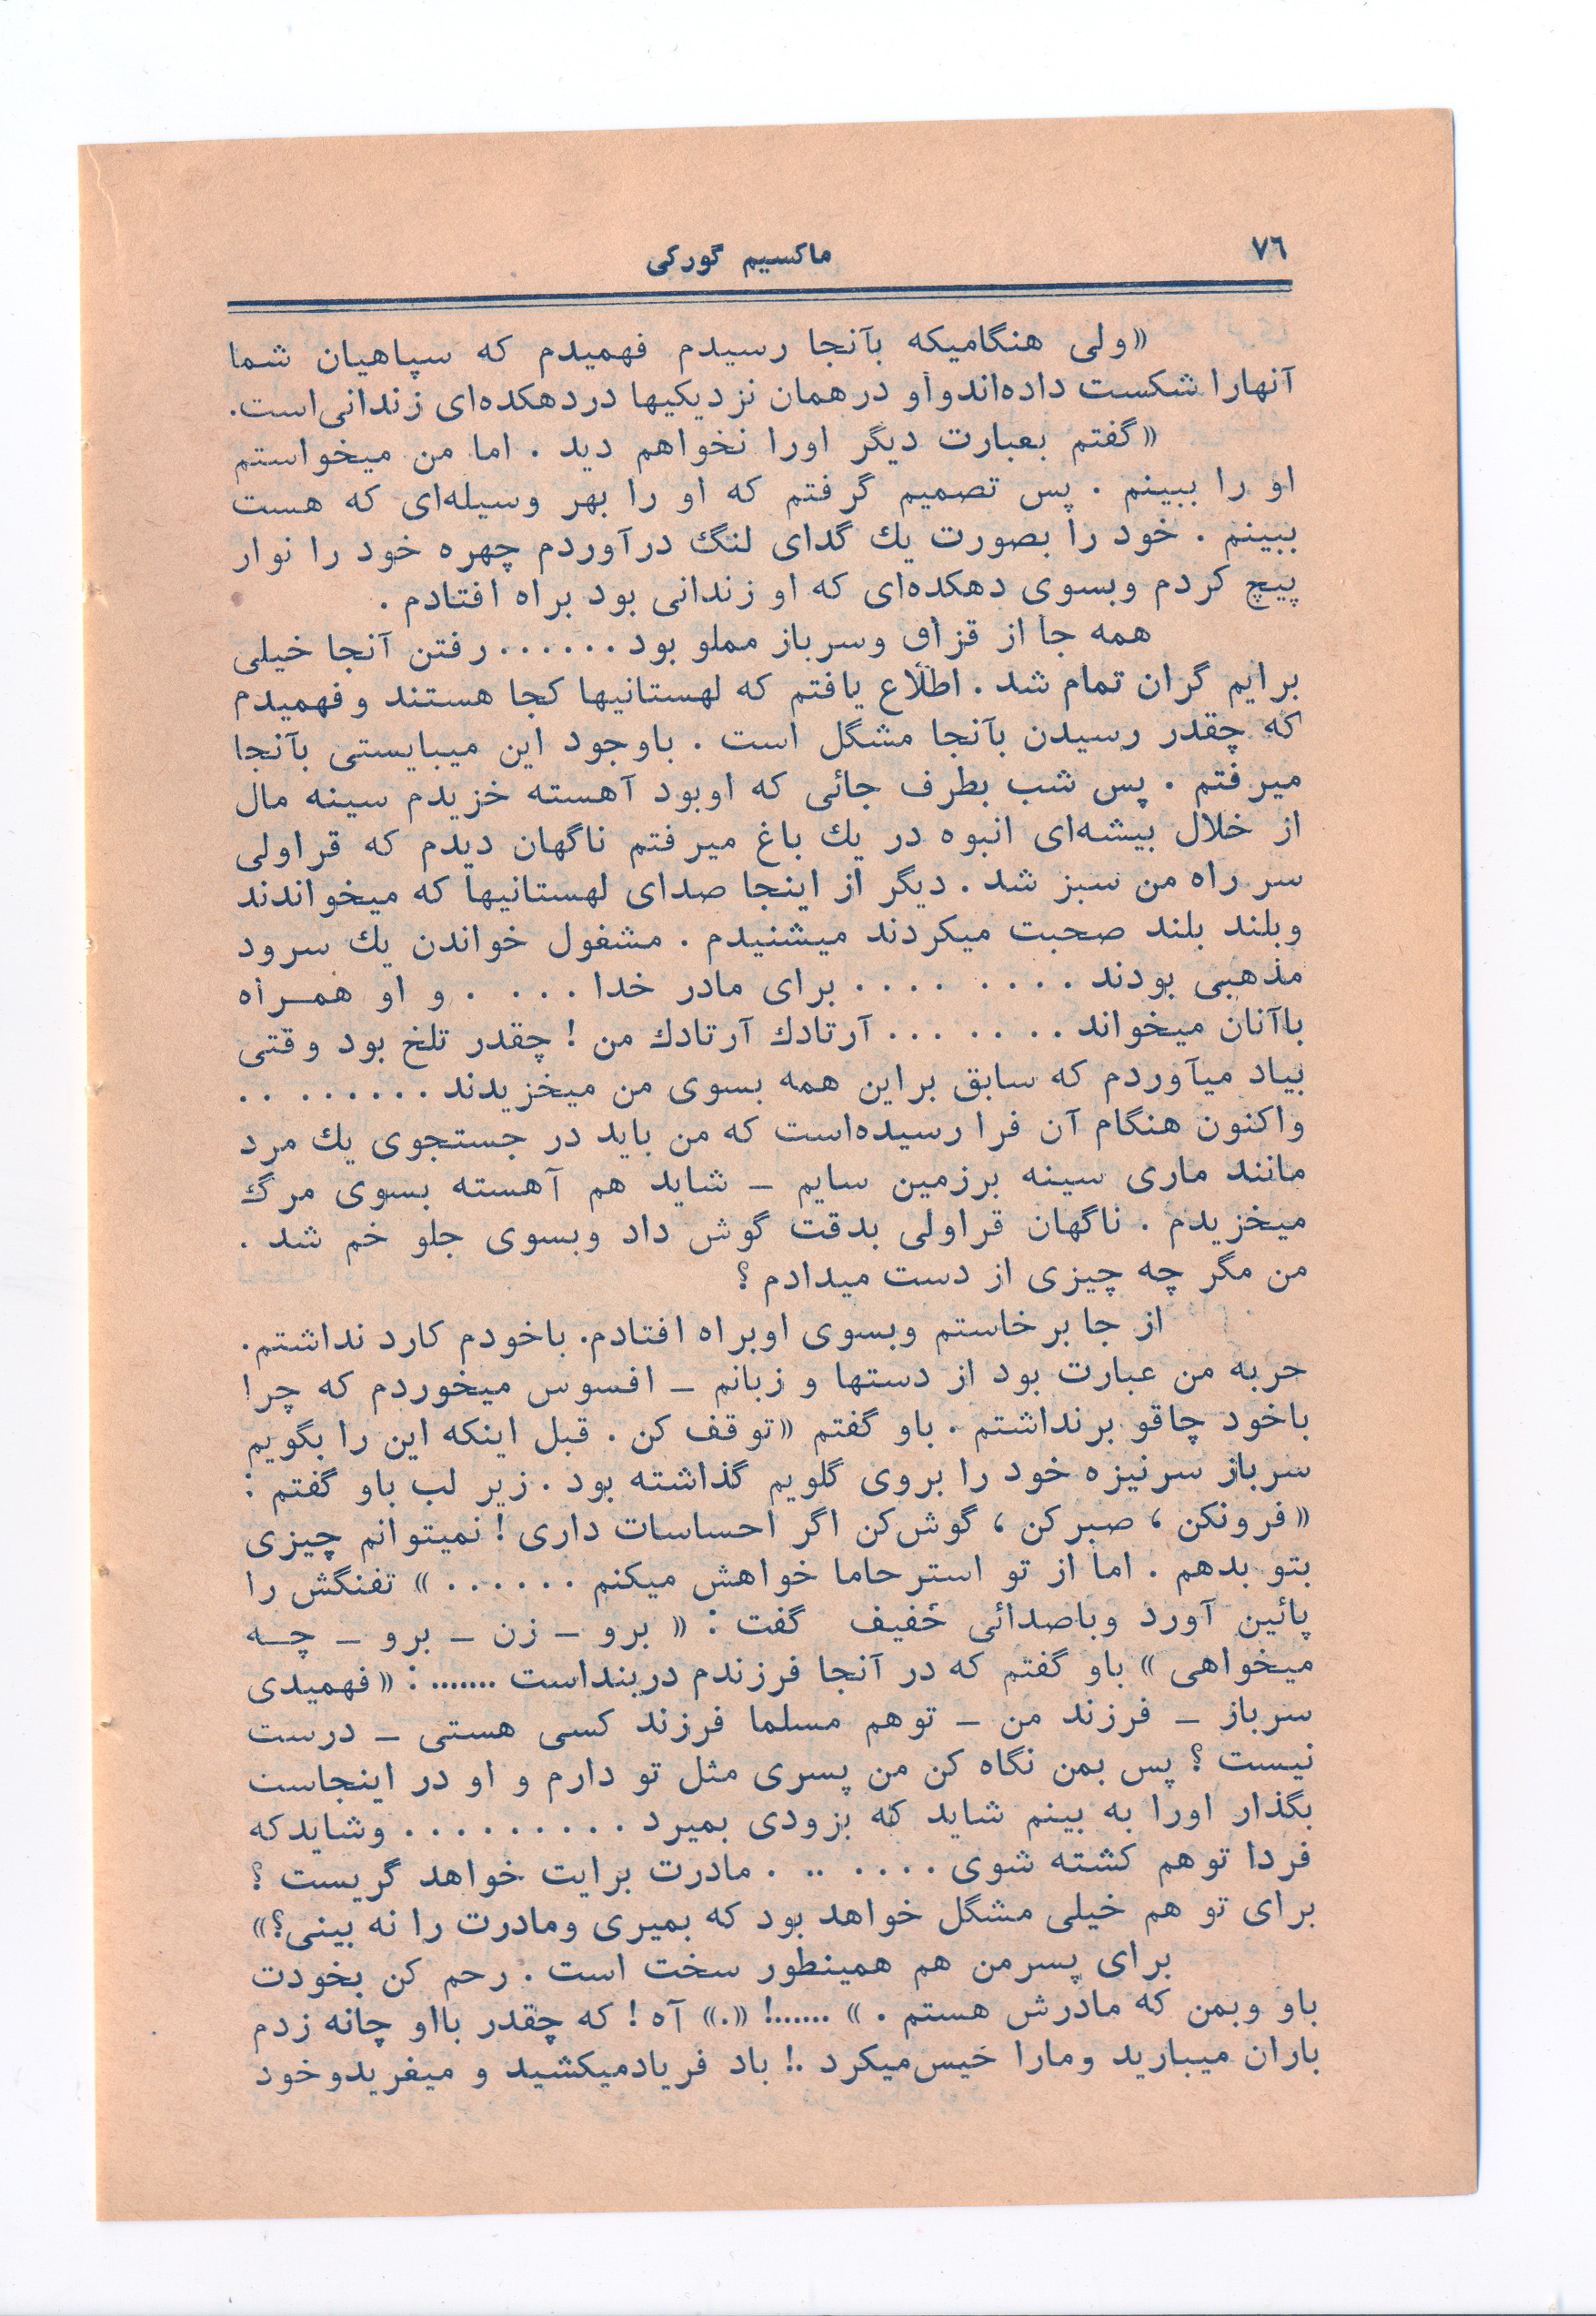 ٧٦
ماکسیم گورکی
«ولی هنگامیکه بآنجا رسیدم فهمیدم که سپاهیان شما
آنهارا شکست داده‌اندواو درهمان نزدیکیها دردهکده‌ای زندانی‌است.
«گفتم بعبارت دیگر اورا نخواهم دید . اما من میخواستم
او را ببینم . پس تصمیم گرفتم که او را بهر وسیله‌ای که هست
ببینم . خود را بصورت یك گدای لنگ درآوردم چهره خود را نوار
پیچ کردم وبسوی دهکده‌ای که او زندانی بود براه افتادم .
همه جا از قزاق وسرباز مملو بود . . . . . . رفتن آنجا خیلی
برایم گران تمام شد . اطلاع یافتم که لهستانیها کجا هستند وفهمیدم
که چقدر رسیدن بآنجا مشگل است . باوجود این میبایستی بآنجا
میرفتم . پس شب بطرف جائی که اوبود آهسته خزیدم سینه مال
از خلال بیشه‌ای انبوه در یك باغ میرفتم ناگهان دیدم که قراولی
سر راه من سبز شد . دیگر از اینجا صدای لهستانیها که میخواندند
وبلند بلند صحبت میکردند میشنیدم . مشغول خواندن یك سرود
مذهبی بودند . . . . . . . . برای مادر خدا . . . . و او همراه
باآنان میخواند . . . . . . . آرتادك آرتادك من ! چقدر تلخ بود وقتی
بیاد میآوردم که سابق براین همه بسوی من میخزیدند . . . . . . . .
واکنون هنگام آن فرا رسیده‌است که من باید در جستجوی یك مرد
مانند ماری سینه برزمین سایم ـ شاید هم آهسته بسوی مرگ
میخزیدم . ناگهان قراولی بدقت گوش داد وبسوی جلو خم شد .
من مگر چه چیزی از دست میدادم ؟
از جا برخاستم وبسوی اوبراه افتادم. باخودم کارد نداشتم.
حربه من عبارت بود از دستها و زبانم ـ افسوس میخوردم که چرا
باخود چاقو برنداشتم . باو گفتم «توقف کن . قبل اینکه این را بگویم
سرباز سرنیزه خود را بروی گلویم گذاشته بود . زیر لب باو گفتم :
«فرونکن ، صبرکن ، گوش‌کن اگر احساسات داری ! نمیتوانم چیزی
بتو بدهم . اما از تو استرحاما خواهش میکنم . . . . . . » تفنگش را
پائین آورد وباصدائی خفیف گفت : « برو ـ زن ـ برو ـ چه
میخواهی » باو گفتم که در آنجا فرزندم دربنداست ....... : «فهمیدی
سرباز ـ فرزند من ـ توهم مسلما فرزند کسی هستی ـ درست
نیست ؟ پس بمن نگاه کن من پسری مثل تو دارم و او در اینجاست
بگذار اورا به بینم شاید که بزودی بمیرد . . . . . . . . . وشایدکه
فردا توهم کشته شوی . . . . .. . مادرت برایت خواهد گریست ؟
برای تو هم خیلی مشگل خواهد بود که بمیری ومادرت را نه بینی؟»
برای پسرمن هم همینطور سخت است . رحم کن بخودت
باو وبمن که مادرش هستم . » .......! «.» آه ! که چقدر بااو چانه زدم
باران میبارید ومارا خیس‌میکرد .! باد فریادمیکشید و میغریدوخود